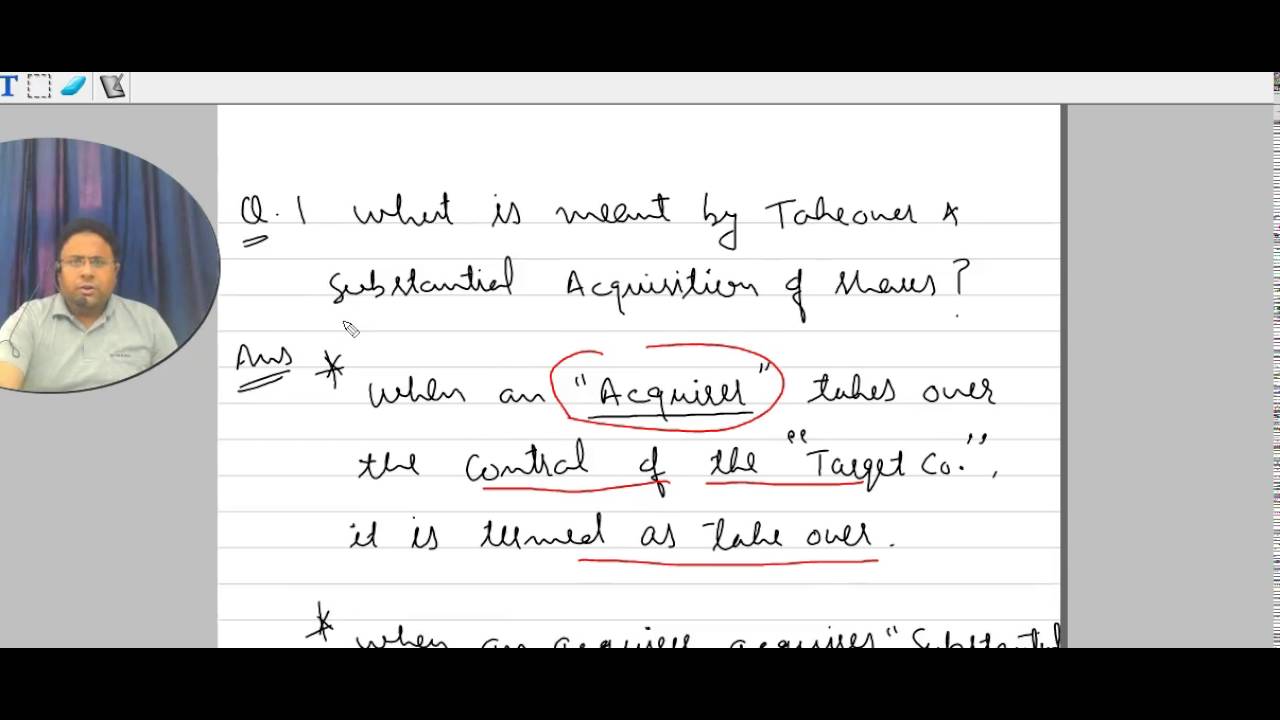 T
Q.1 What is meant by Takeover &
Substantial Acquisition of Shares?
Ans * When an "Acquirer" takes over
the control of the "Target Co.",
it is termed as take over.
* When an acquirer acquires "Substantial